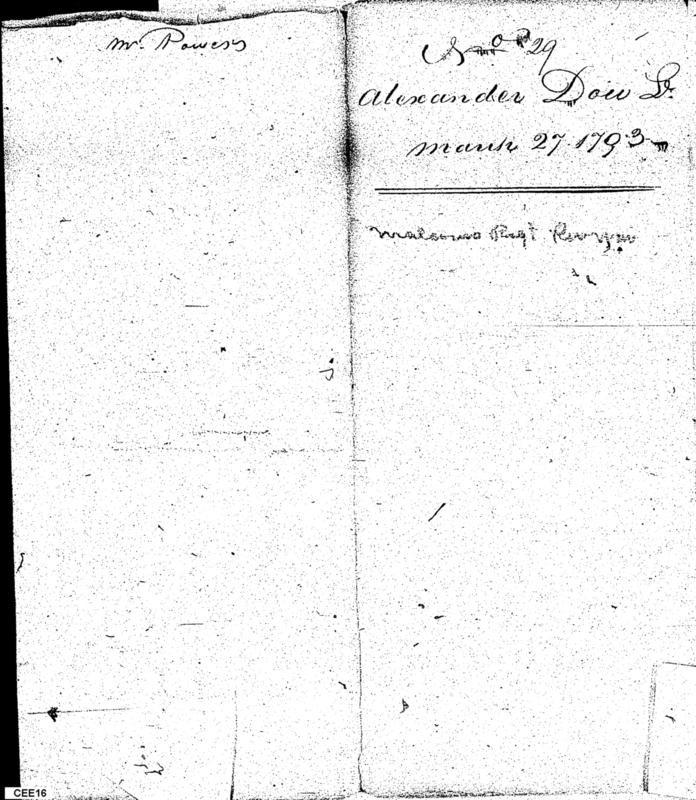 Mr. Powers
No 29
Alexander Dow Lt.
March 27. 1793
Malcoms Regt
CEE16